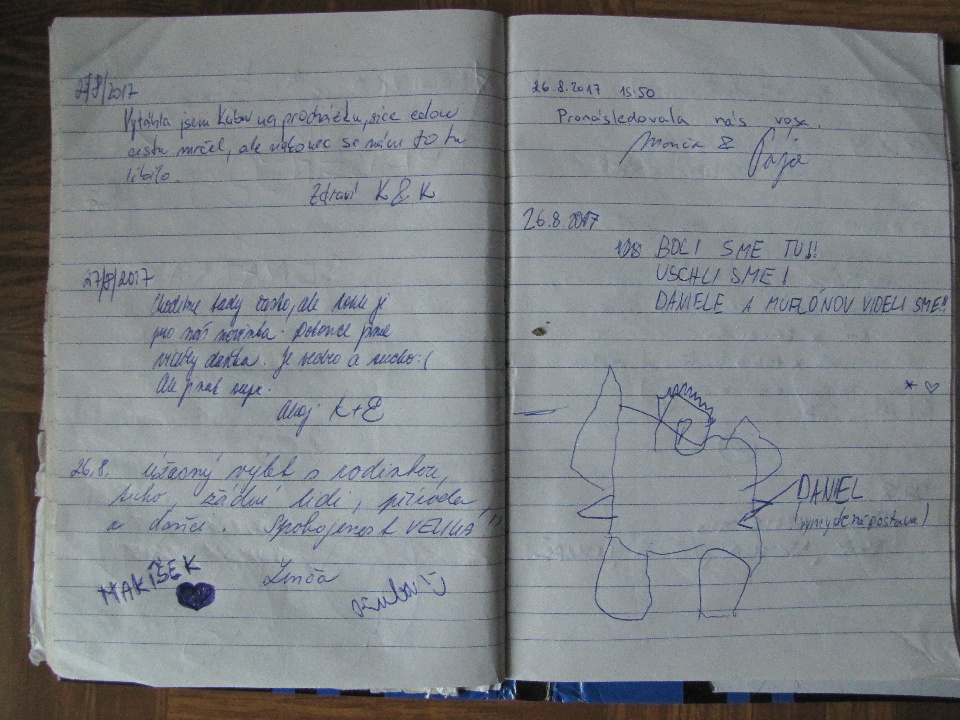 27/8/2017
Vytáhla jsem Kubu na procházku, sice celou
cestu mrčel, ale nakonec se nám to tu
líbilo.
Zdraví K & K
27/8/2017
Chodíme tady často, ale tohle je
pro nás novinka. Dokonce jsme
viděly daňka. Je vedro a sucho :(
Ale jinak super.
Ahoj K+E
26.8. úžasný výlet s rodinkou,
ticho, žádní lidi, příroda
a daňci. Spokojenost VELIKÁ!!
MAKÍŠEK
Zinča
26.8.2017 15:50
Pronásledovala nás vosa.
Monča & Pája
26.8.2017
BOLI SME TU!!
USCHLI SME!
DANIELE A MUFLÓNOV VIDELI SME!!
DANIEL
(vymyslená postava)